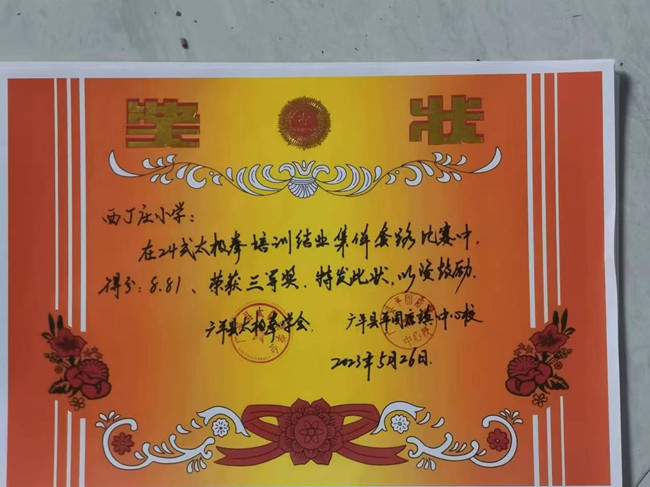 奖状
西丁庄小学：
在24式太极拳培训结业集体套路比赛中，
得分：8.81、荣获三等奖．特发此状，以资鼓励．
广平县太极拳学会 广平县平固店镇中心校
2023年5月26日．